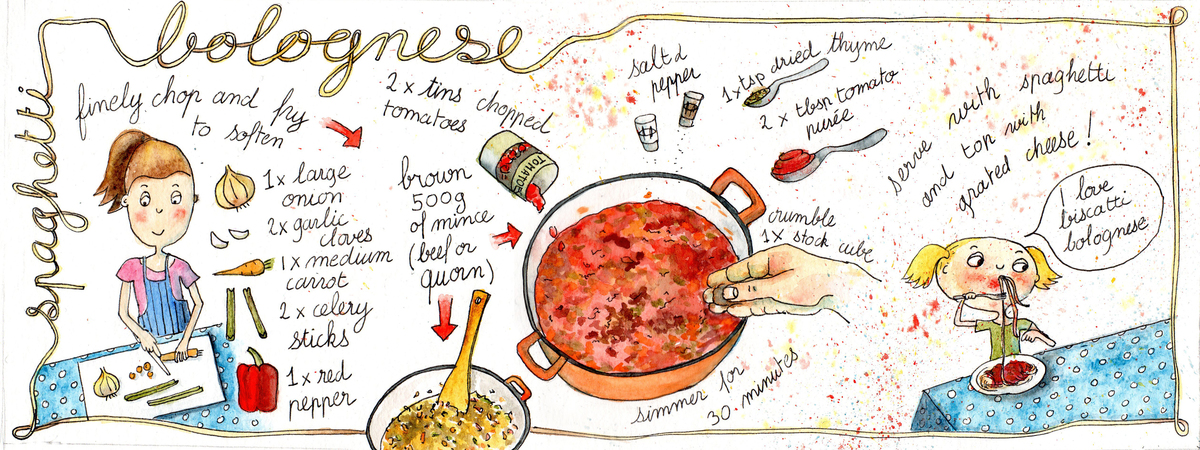 spaghetti
bolognese
finely chop and fry
to soften
1x large
onion
2x garlic
cloves
1x medium
carrot
2 x celery
sticks
1x red
pepper
2 x tins chopped
tomatoes
TOMATOES
brown
500g
of mince
(beef or
quorn)
salt &
pepper
1x tsp dried thyme
2 x tbsp tomato
purée
crumble
1x stock cube
simmer for
30 minutes
serve with spaghetti
and top with
grated cheese!
I love
biscatti
bolognese